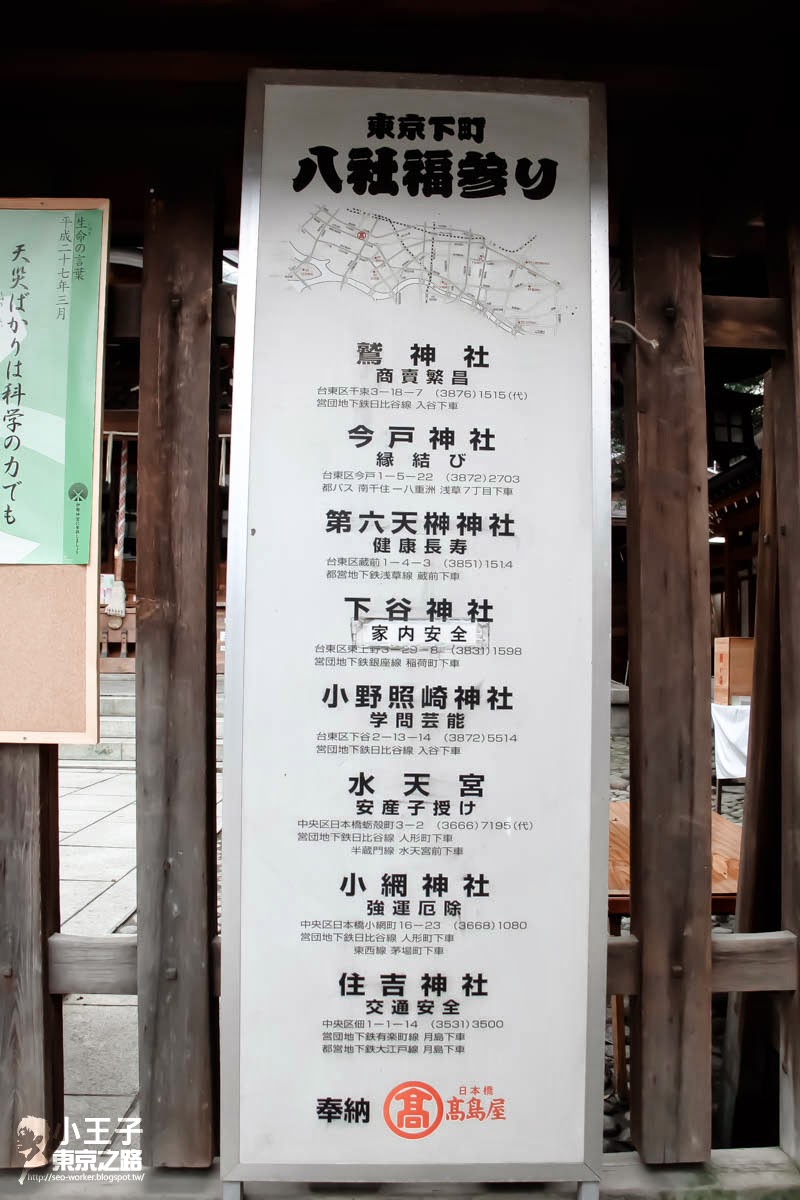 生命の言葉
平成二十七年三月
天災ばかりは科学の力でも
東京下町
八社福参り
鷲神社
商賣繁昌
台東区千束3−18−7 (3876)1515(代)
営団地下鉄日比谷線 入谷下車
今戸神社
縁結び
台東区今戸1−5−22 (3872)2703
都バス 南千住一八重洲 浅草7丁目下車
第六天榊神社
健康長寿
台東区蔵前1−4−3 (3851)1514
都営地下鉄浅草線 蔵前下車
下谷神社
家内安全
台東区東上野3−29−8 (3831)1598
営団地下鉄銀座線 稲荷町下車
小野照崎神社
学問芸能
台東区下谷2−13−14 (3872)5514
営団地下鉄日比谷線 入谷下車
水天宮
安産子授け
中央区日本橋蛎殻町3−2 (3666)7195(代)
営団地下鉄日比谷線 人形町下車
半蔵門線 水天宮前下車
小網神社
強運厄除
中央区日本橋小網町16−23 (3668)1080
営団地下鉄日比谷線 人形町下車
東西線 茅場町下車
住吉神社
交通安全
中央区佃1−1−14 (3531)3500
営団地下鉄有楽町線 月島下車
都営地下鉄大江戸線 月島下車
奉納 髙 日本橋 髙島屋
小王子
東京之路
http://seo-worker.blogspot.tw/